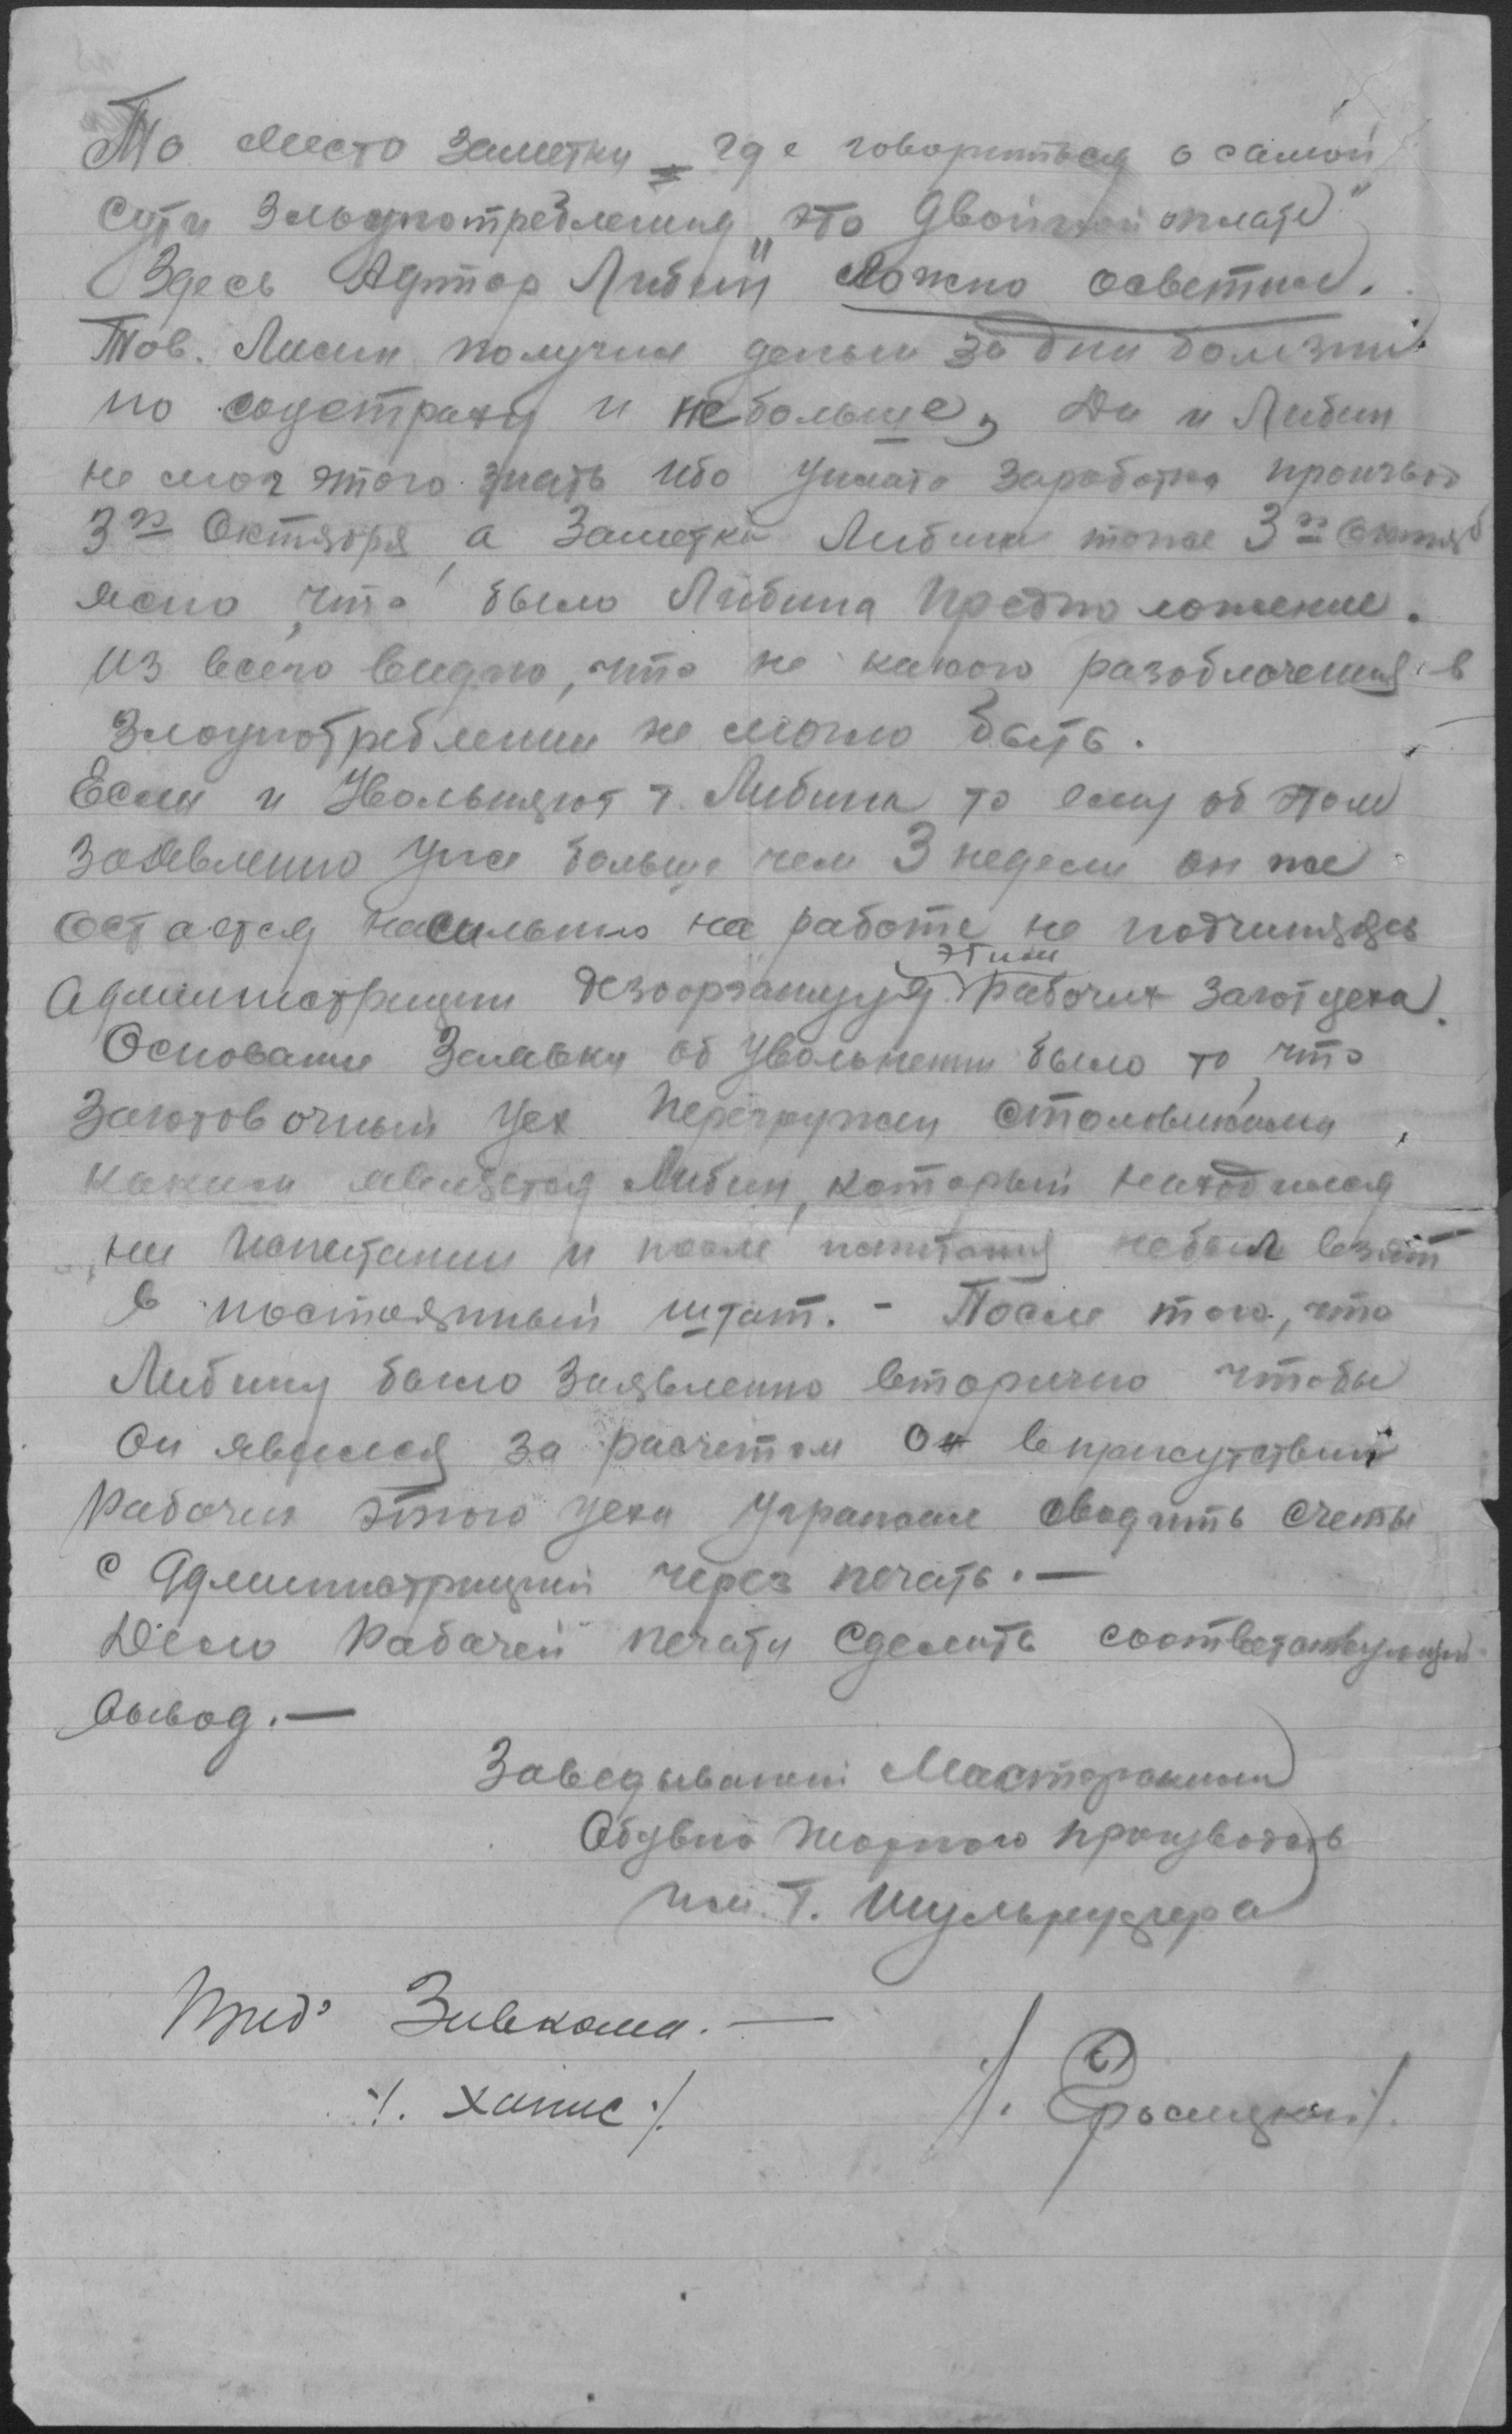 То место заметки = где говориться о самой
сути Злоупотребления "это двойной оплате"
Здесь Автор Либин ложно осветил.
Тов. Лисин получил деньги за дни болезни
по соцстраху и небольше, Да и Либин
не мог этого знать ибо уплата заработка произвед
3го Октября, а Заметка Либина тоже 3го Октяб
ясно, что было Либина Предположение.
Из всего видно, что не какого разоблочения в
Злоупотреблении не могло быть.
Если и Увольняют т. Либина то ему об этом
заявленно уже больше чем 3 недели он же
остается насильно на работе не подчиняясь
Администрации дезоорганизуя этим рабочих Заготцеха.
Основание Заявки об увольнении было то, что
Заготовочный цех Перегружен столовиками,
каким является Либин, который находился
на Испытании и после испытания небыл взят
в постоянный штат. - После того, что
Либину было Заявленно вторично чтобы
Он явился за расчетом Он вприсутствии
Рабочих этого цеха Угрожал сводить счеты
с Администрацией через печать. —
Дело Рабочей печати Сделать соответствующий
вывод. —
Заведывающий Мастерскими
Обувно производств
Им. Т.
Пред. Завкома. —
/. Ханис ./